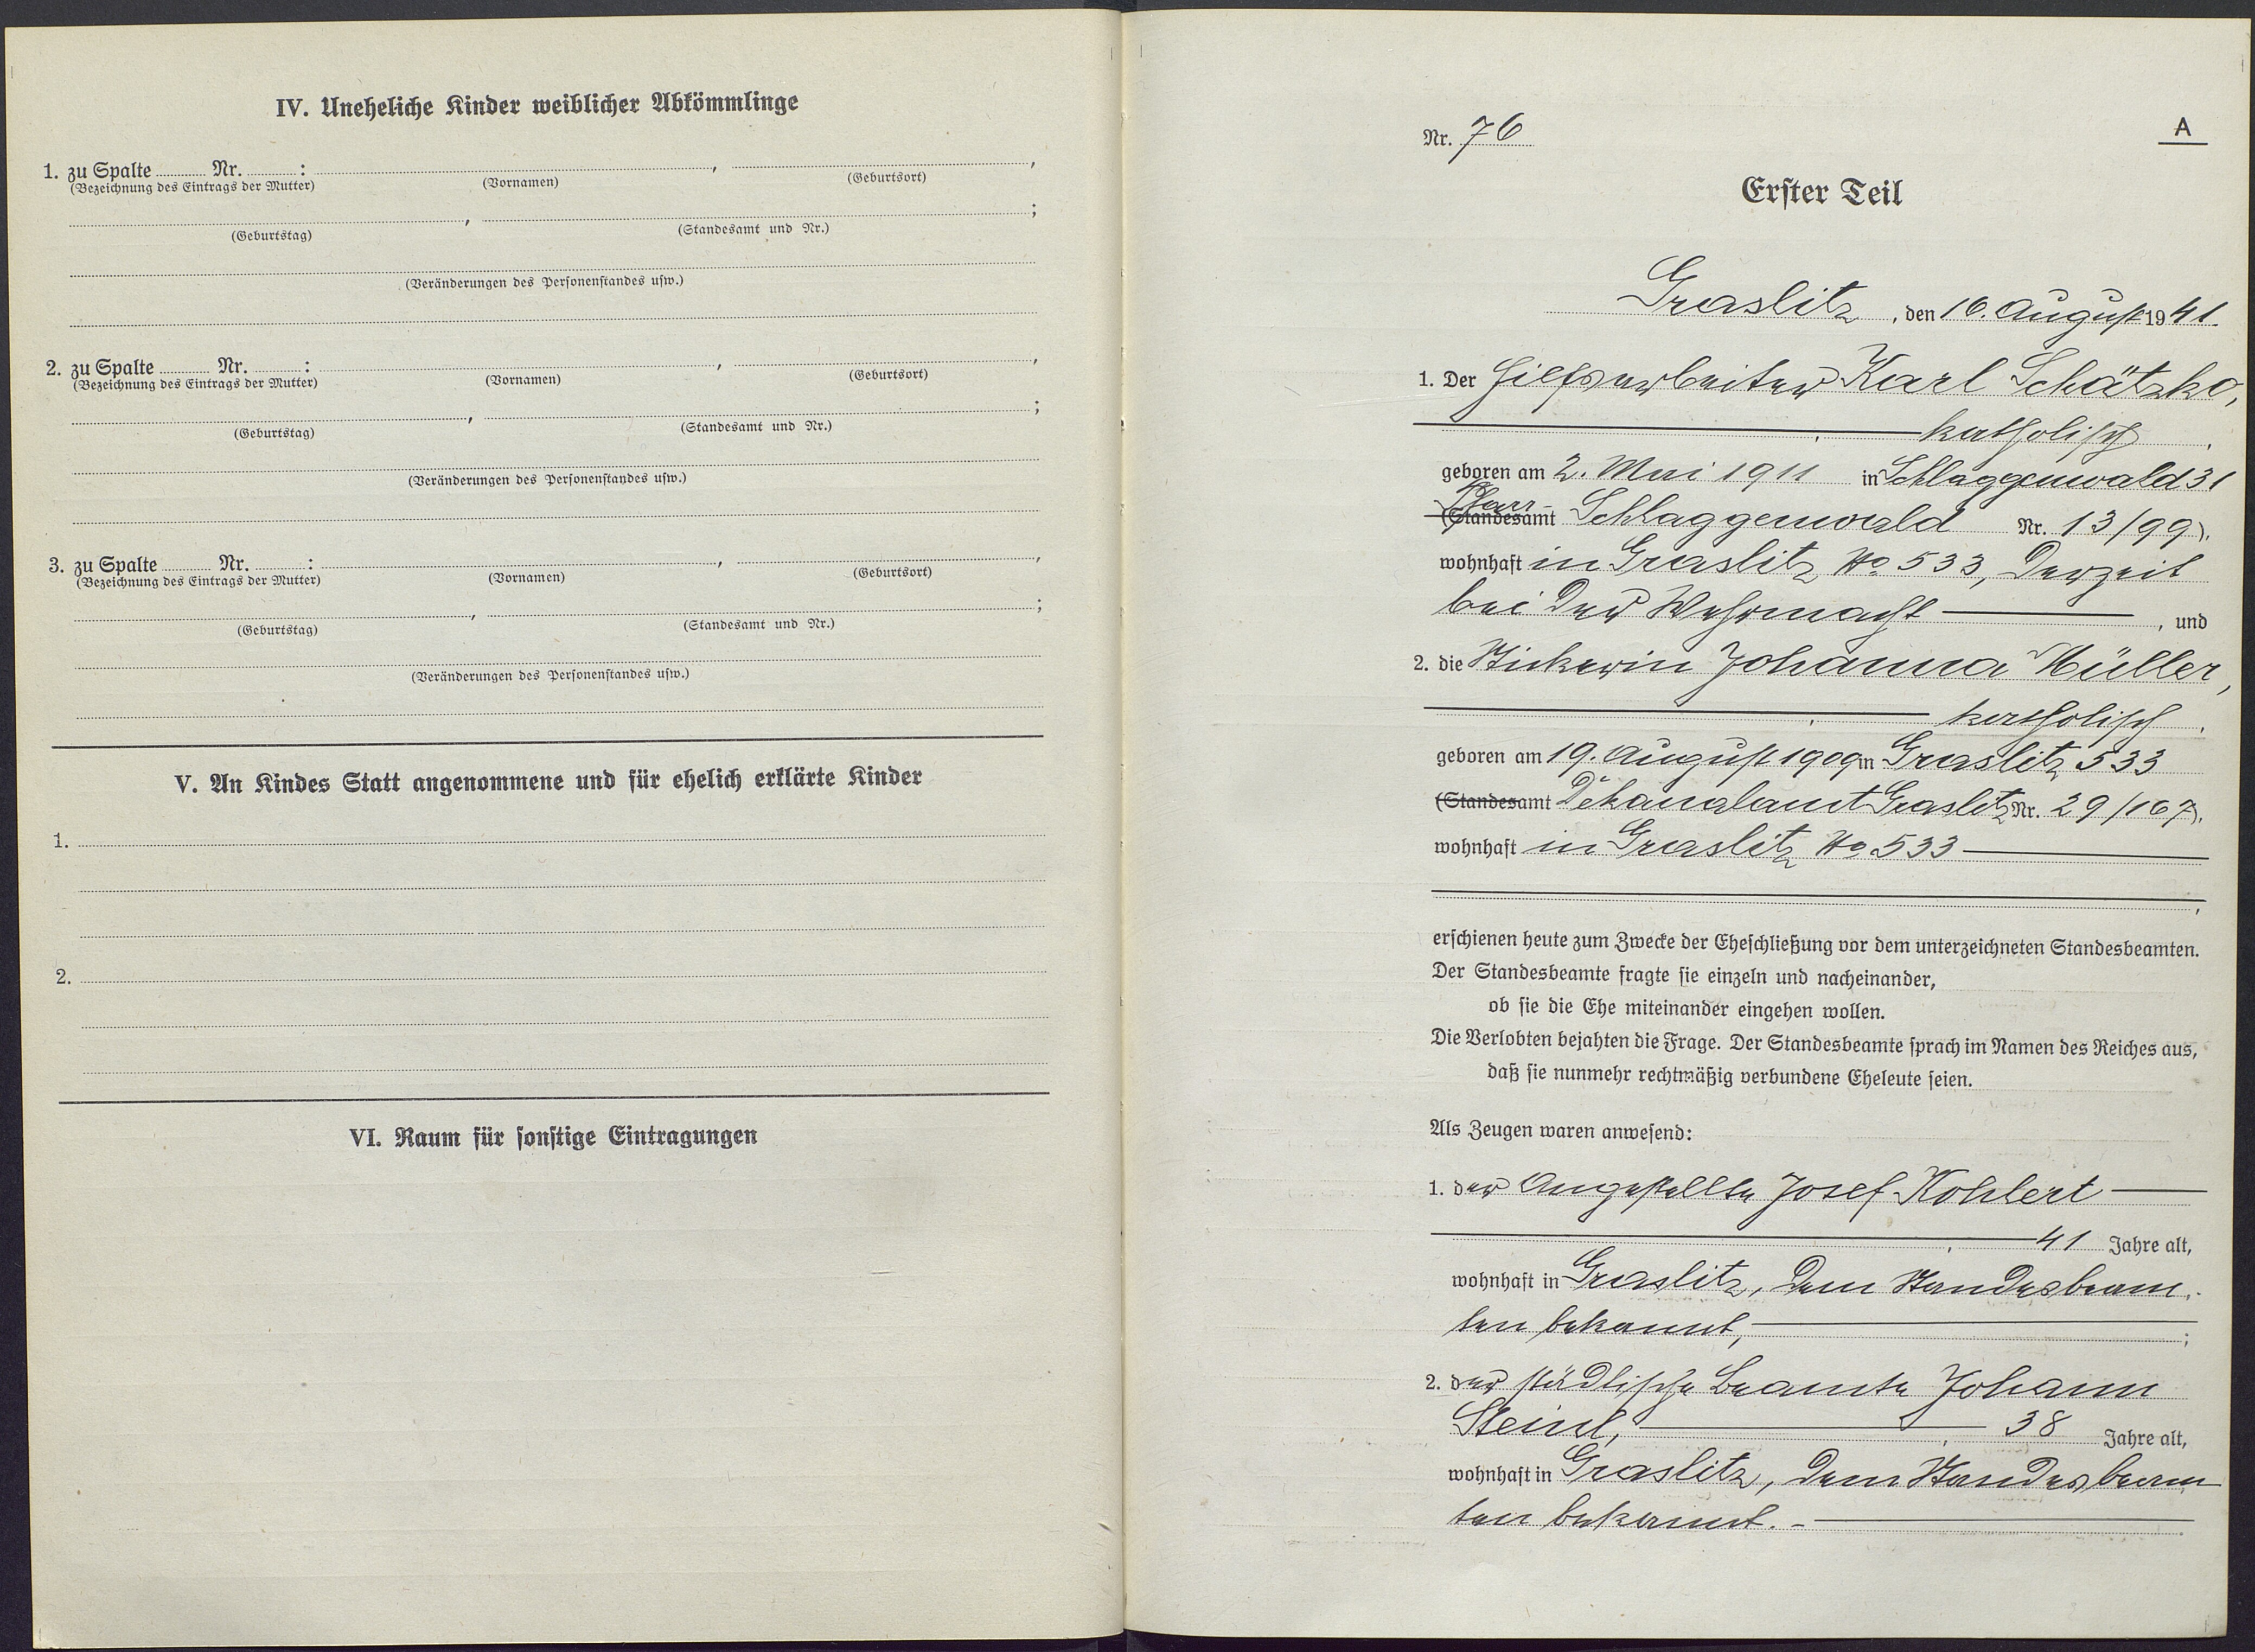 IV. Uneheliche Kinder weiblicher Abkömmlinge
1. zu Spalte ........ Nr. ........ : ........, ........,
(Bezeichnung des Eintrags der Mutter) (Vornamen) (Geburtsort)
........, ........;
(Geburtstag) (Standesamt und Nr.)
(Veränderungen des Personenstandes usw.)
2. zu Spalte ........ Nr. ........ : ........, ........,
(Bezeichnung des Eintrags der Mutter) (Vornamen) (Geburtsort)
........, ........;
(Geburtstag) (Standesamt und Nr.)
(Veränderungen des Personenstandes usw.)
3. zu Spalte ........ Nr. ........ : ........, ........,
(Bezeichnung des Eintrags der Mutter) (Vornamen) (Geburtsort)
........, ........;
(Geburtstag) (Standesamt und Nr.)
(Veränderungen des Personenstandes usw.)
V. An Kindes Statt angenommene und für ehelich erklärte Kinder
1.
2.
VI. Raum für sonstige Eintragungen
Nr. 76
A
Erster Teil
Graslitz, den 16. August 1941.
1. Der Hilfsarbeiter Karl Schätzko,
katholisch,
geboren am 2. Mai 1911 in Schlaggenwald 31
Pfarr-
(Standesamt Schlaggenwald Nr. 13/99),
wohnhaft in Graslitz No 533, derzeit
bei der Wehrmacht, und
2. die Stickerin Johanna Müller,
katholisch,
geboren am 19. August 1909 in Graslitz 533
(Standesamt Dekanalamt Graslitz Nr. 29/167),
wohnhaft in Graslitz No 533
,
erschienen heute zum Zwecke der Eheschließung vor dem unterzeichneten Standesbeamten.
Der Standesbeamte fragte sie einzeln und nacheinander,
ob sie die Ehe miteinander eingehen wollen.
Die Verlobten bejahten die Frage. Der Standesbeamte sprach im Namen des Reiches aus,
daß sie nunmehr rechtmäßig verbundene Eheleute seien.
Als Zeugen waren anwesend:
1. der Angestellte Josef Kohlert
41 Jahre alt,
wohnhaft in Graslitz, dem Standesbeam-
ten bekannt,;
2. der städtische Beamte Johann
Steinl, 38 Jahre alt,
wohnhaft in Graslitz, dem Standesbeam
ten bekannt. -